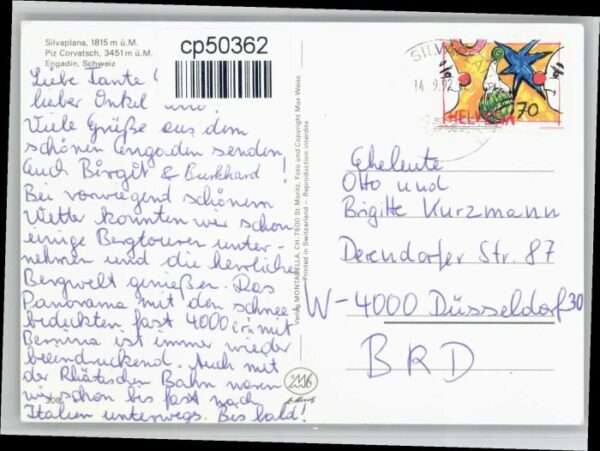 Silvaplana, 1815 m ü.M.
Piz Corvatsch, 3451 m ü.M.
Engadin, Schweiz
cp50362
Liebe Tante!
lieber Onkel
Viele Grüße aus dem
schönen Engadin senden
Euch Birgit & Burkhard!
Bei vorwiegend schönem
Wetter konnten wir schon
einige Bergtouren unter-
nehmen und die herrliche
Bergwelt genießen. Das
Panorama mit den schnee-
bedeckten fast 4000 mit
Bernina ist immer wieder
beeindruckend. Auch mit
der Rhätischen Bahn waren
wir schon bis fast nach
Italien unterwegs. Bis bald!
Verlag MONTABELLA, CH-7500 St. Moritz, Foto und Copyright Max Weiss
Printed in Switzerland – Reproduction interdite
2116
SILV
14.9.92
70
HELVETIA
Eheleute
Otto und
Brigitte Kurzmann
Derendorfer Str. 87
W-4000 Düsseldorf 30
BRD